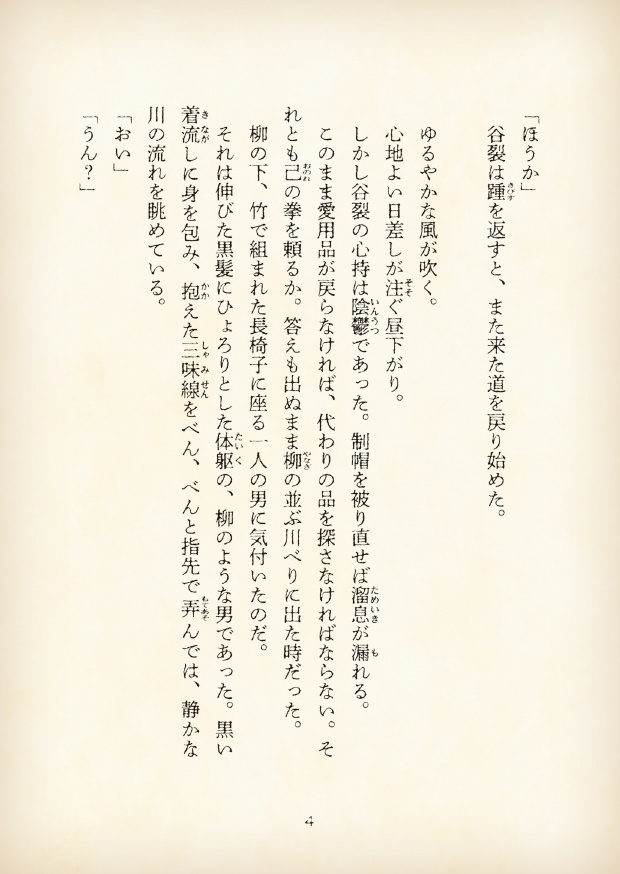 「ほうか」
谷裂は踵を返すと、また来た道を戻り始めた。
ゆるやかな風が吹く。
心地よい日差しが注ぐ昼下がり。
しかし谷裂の心持は陰鬱であった。制帽を被り直せば溜息が漏れる。
このまま愛用品が戻らなければ、代わりの品を探さなければならない。そ
れとも己の拳を頼るか。答えも出ぬまま柳の並ぶ川べりに出た時だった。
柳の下、竹で組まれた長椅子に座る一人の男に気付いたのだ。
それは伸びた黒髪にひょろりとした体躯の、柳のような男であった。黒い
着流しに身を包み、抱えた三味線をべん、べんと指先で弄んでは、静かな
川の流れを眺めている。
「おい」
「うん？」
4